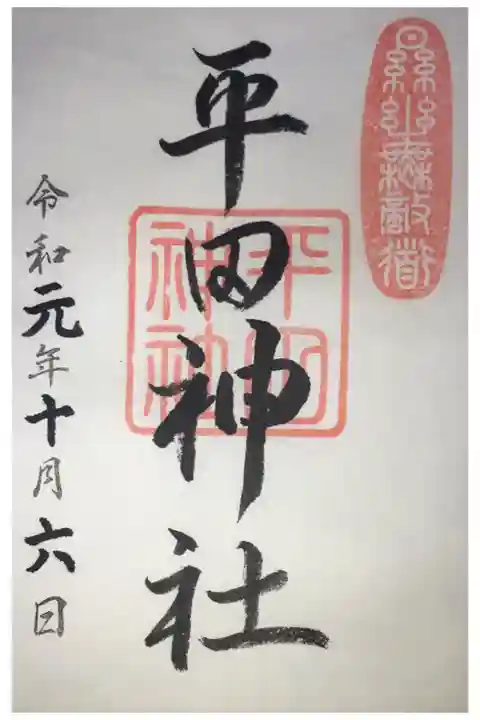 平田神社
平田
神社
令和元年十月六日